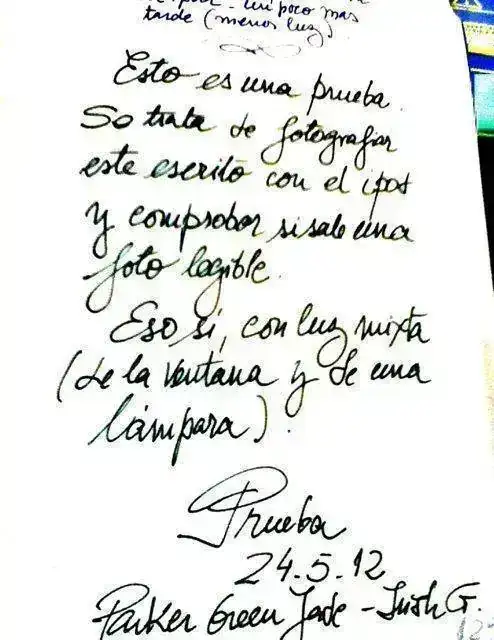 un poco mas
tarde (menos luz)
Esto es una prueba.
Se trata de fotografiar
este escrito con el ipod
y comprobar si sale una
foto legible.
Eso sí, con luz mixta
(de la ventana y de una
lámpara).
Prueba
24.5.12
Parker Green Jade - Irish G.